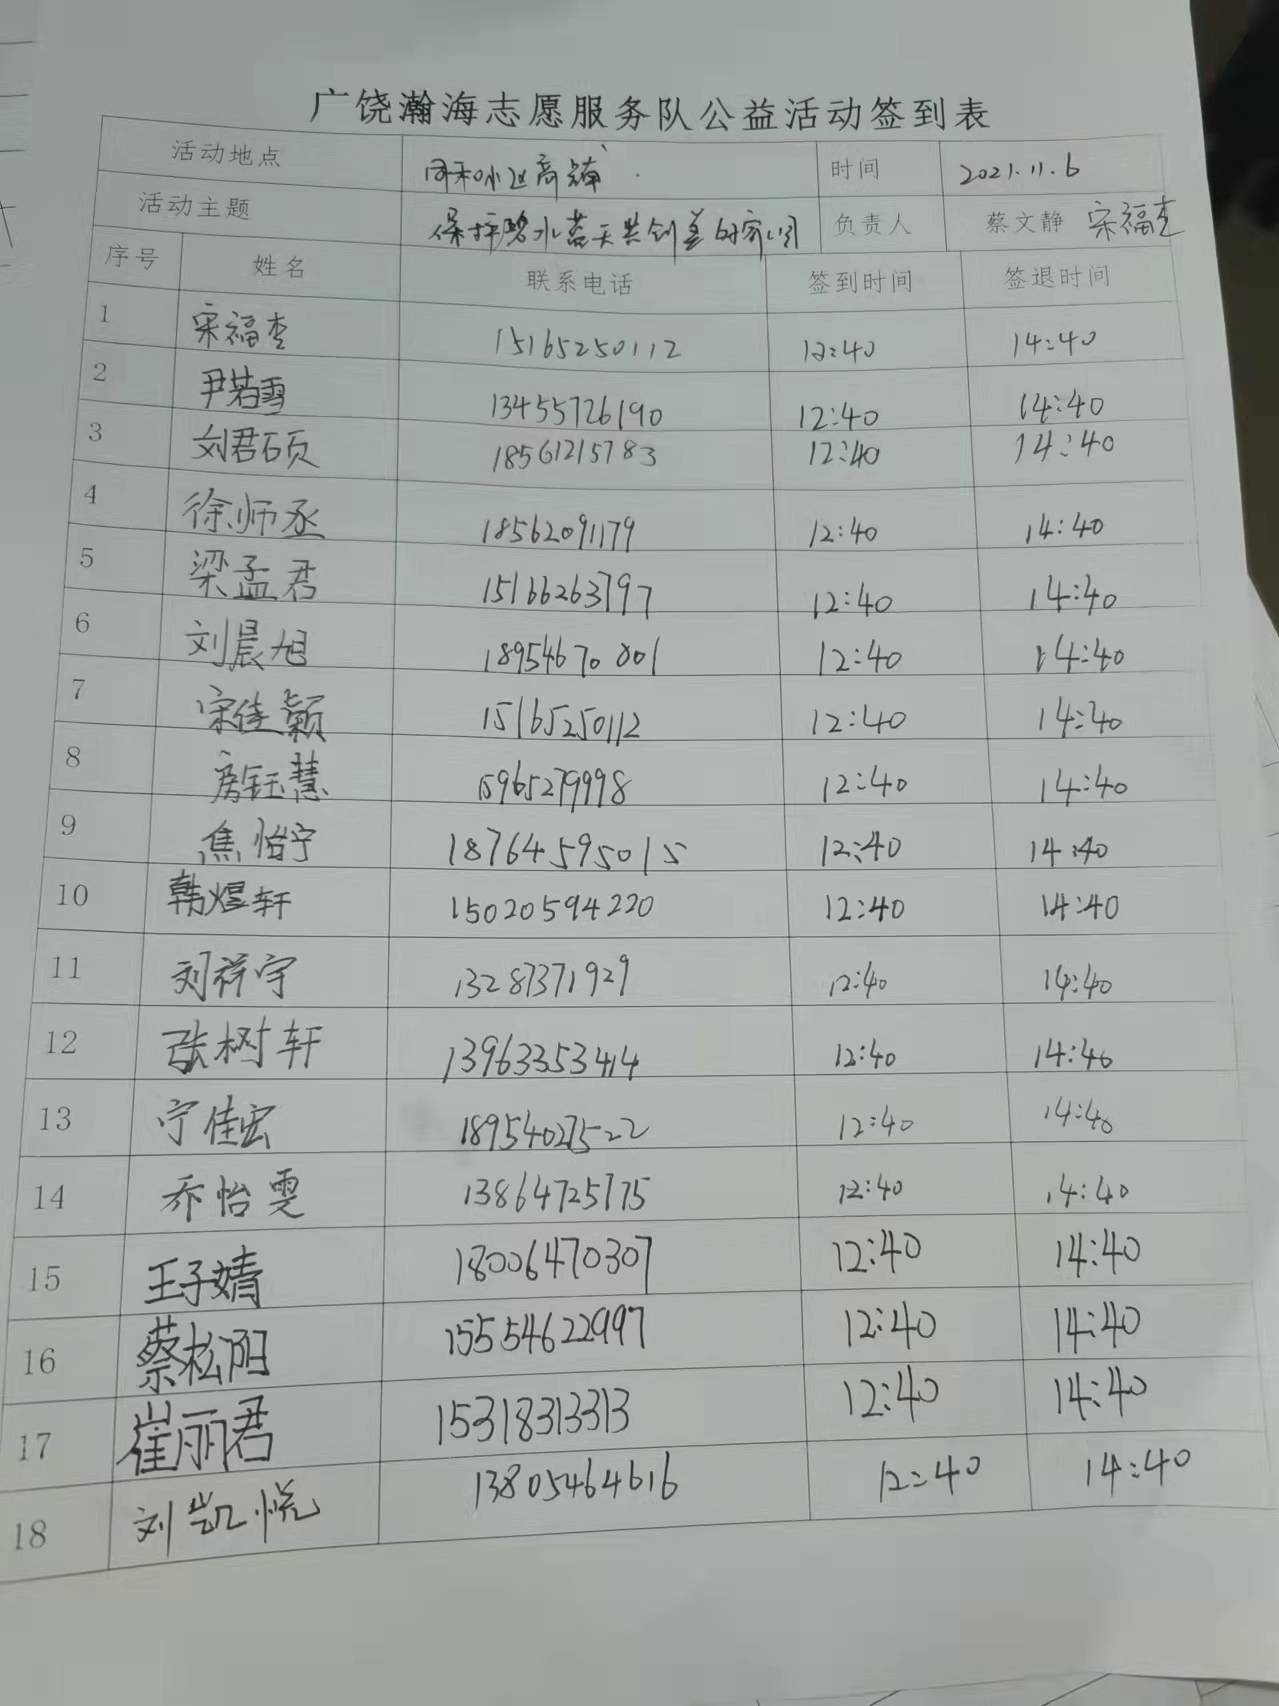 广饶瀚海志愿服务队公益活动签到表
活动地点 同和小区商铺 时间 2021.11.6
活动主题 保护碧水蓝天共创美好家园 负责人 蔡文静 宋福杢
序号 姓名 联系电话 签到时间 签退时间
1 宋福杢 15165250112 12:40 14:40
2 尹若雪 13455726190 12:40 14:40
3 刘君硕 18561215783 12:40 14:40
4 徐师丞 18562091179 12:40 14:40
5 梁孟君 15166263797 12:40 14:40
6 刘晨旭 18954670801 12:40 14:40
7 宋佳颖 15165250112 12:40 14:40
8 房钰慧 15965279998 12:40 14:40
9 焦怡宁 18764595015 12:40 14:40
10 韩煜轩 15020594220 12:40 14:40
11 刘祥宇 13287371929 12:40 14:40
12 张树轩 13963353414 12:40 14:40
13 宁佳宏 18954027522 12:40 14:40
14 乔怡雯 13864725775 12:40 14:40
15 王子婧 18006470307 12:40 14:40
16 蔡松阳 15554622997 12:40 14:40
17 崔丽君 15318313313 12:40 14:40
18 刘凯悦 13805464616 12:40 14:40